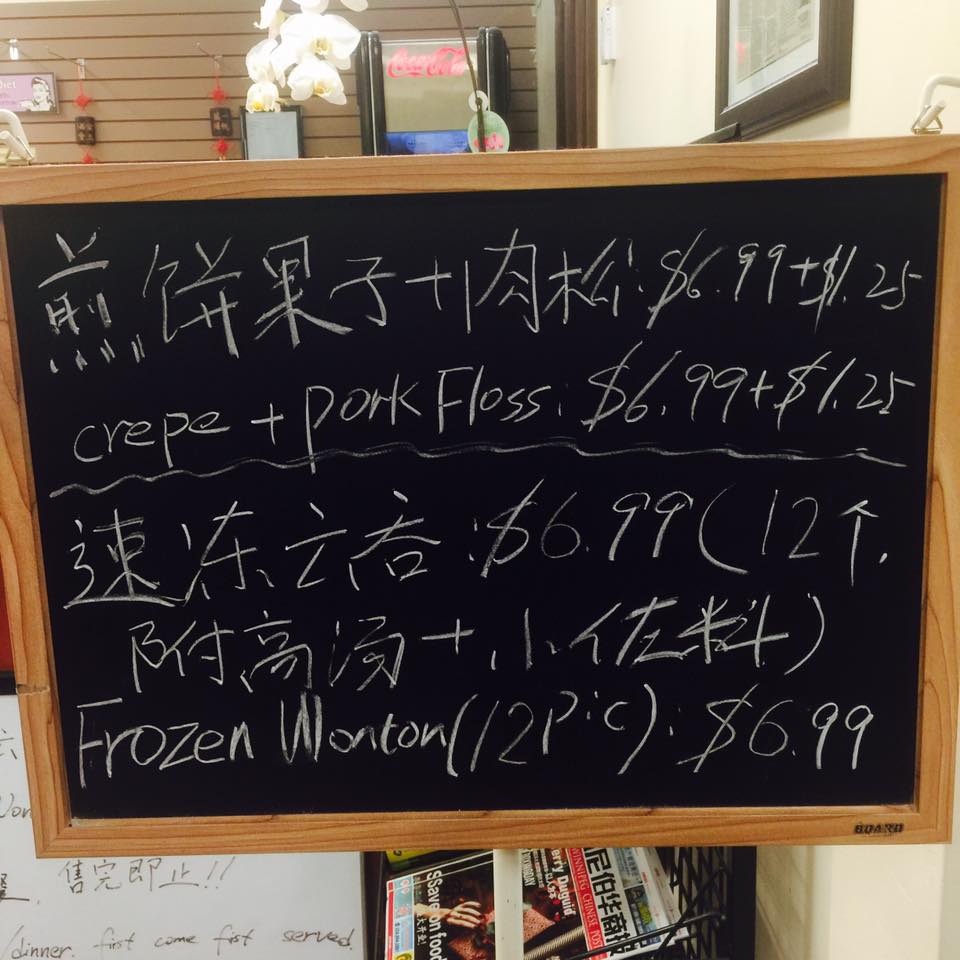 Coca-Cola
煎饼果子+肉松:$6.99+$1.25
crepe + pork Floss: $6.99+$1.25
速冻云吞:$6.99(12个,
附高汤+小佐料)
Frozen Wonton(12pic): $6.99
BOARD
售完即止!!
/dinner. first come first served.
$Save on food
erry Duguid
尼伯华商
WINNIPEG CHINESE POST